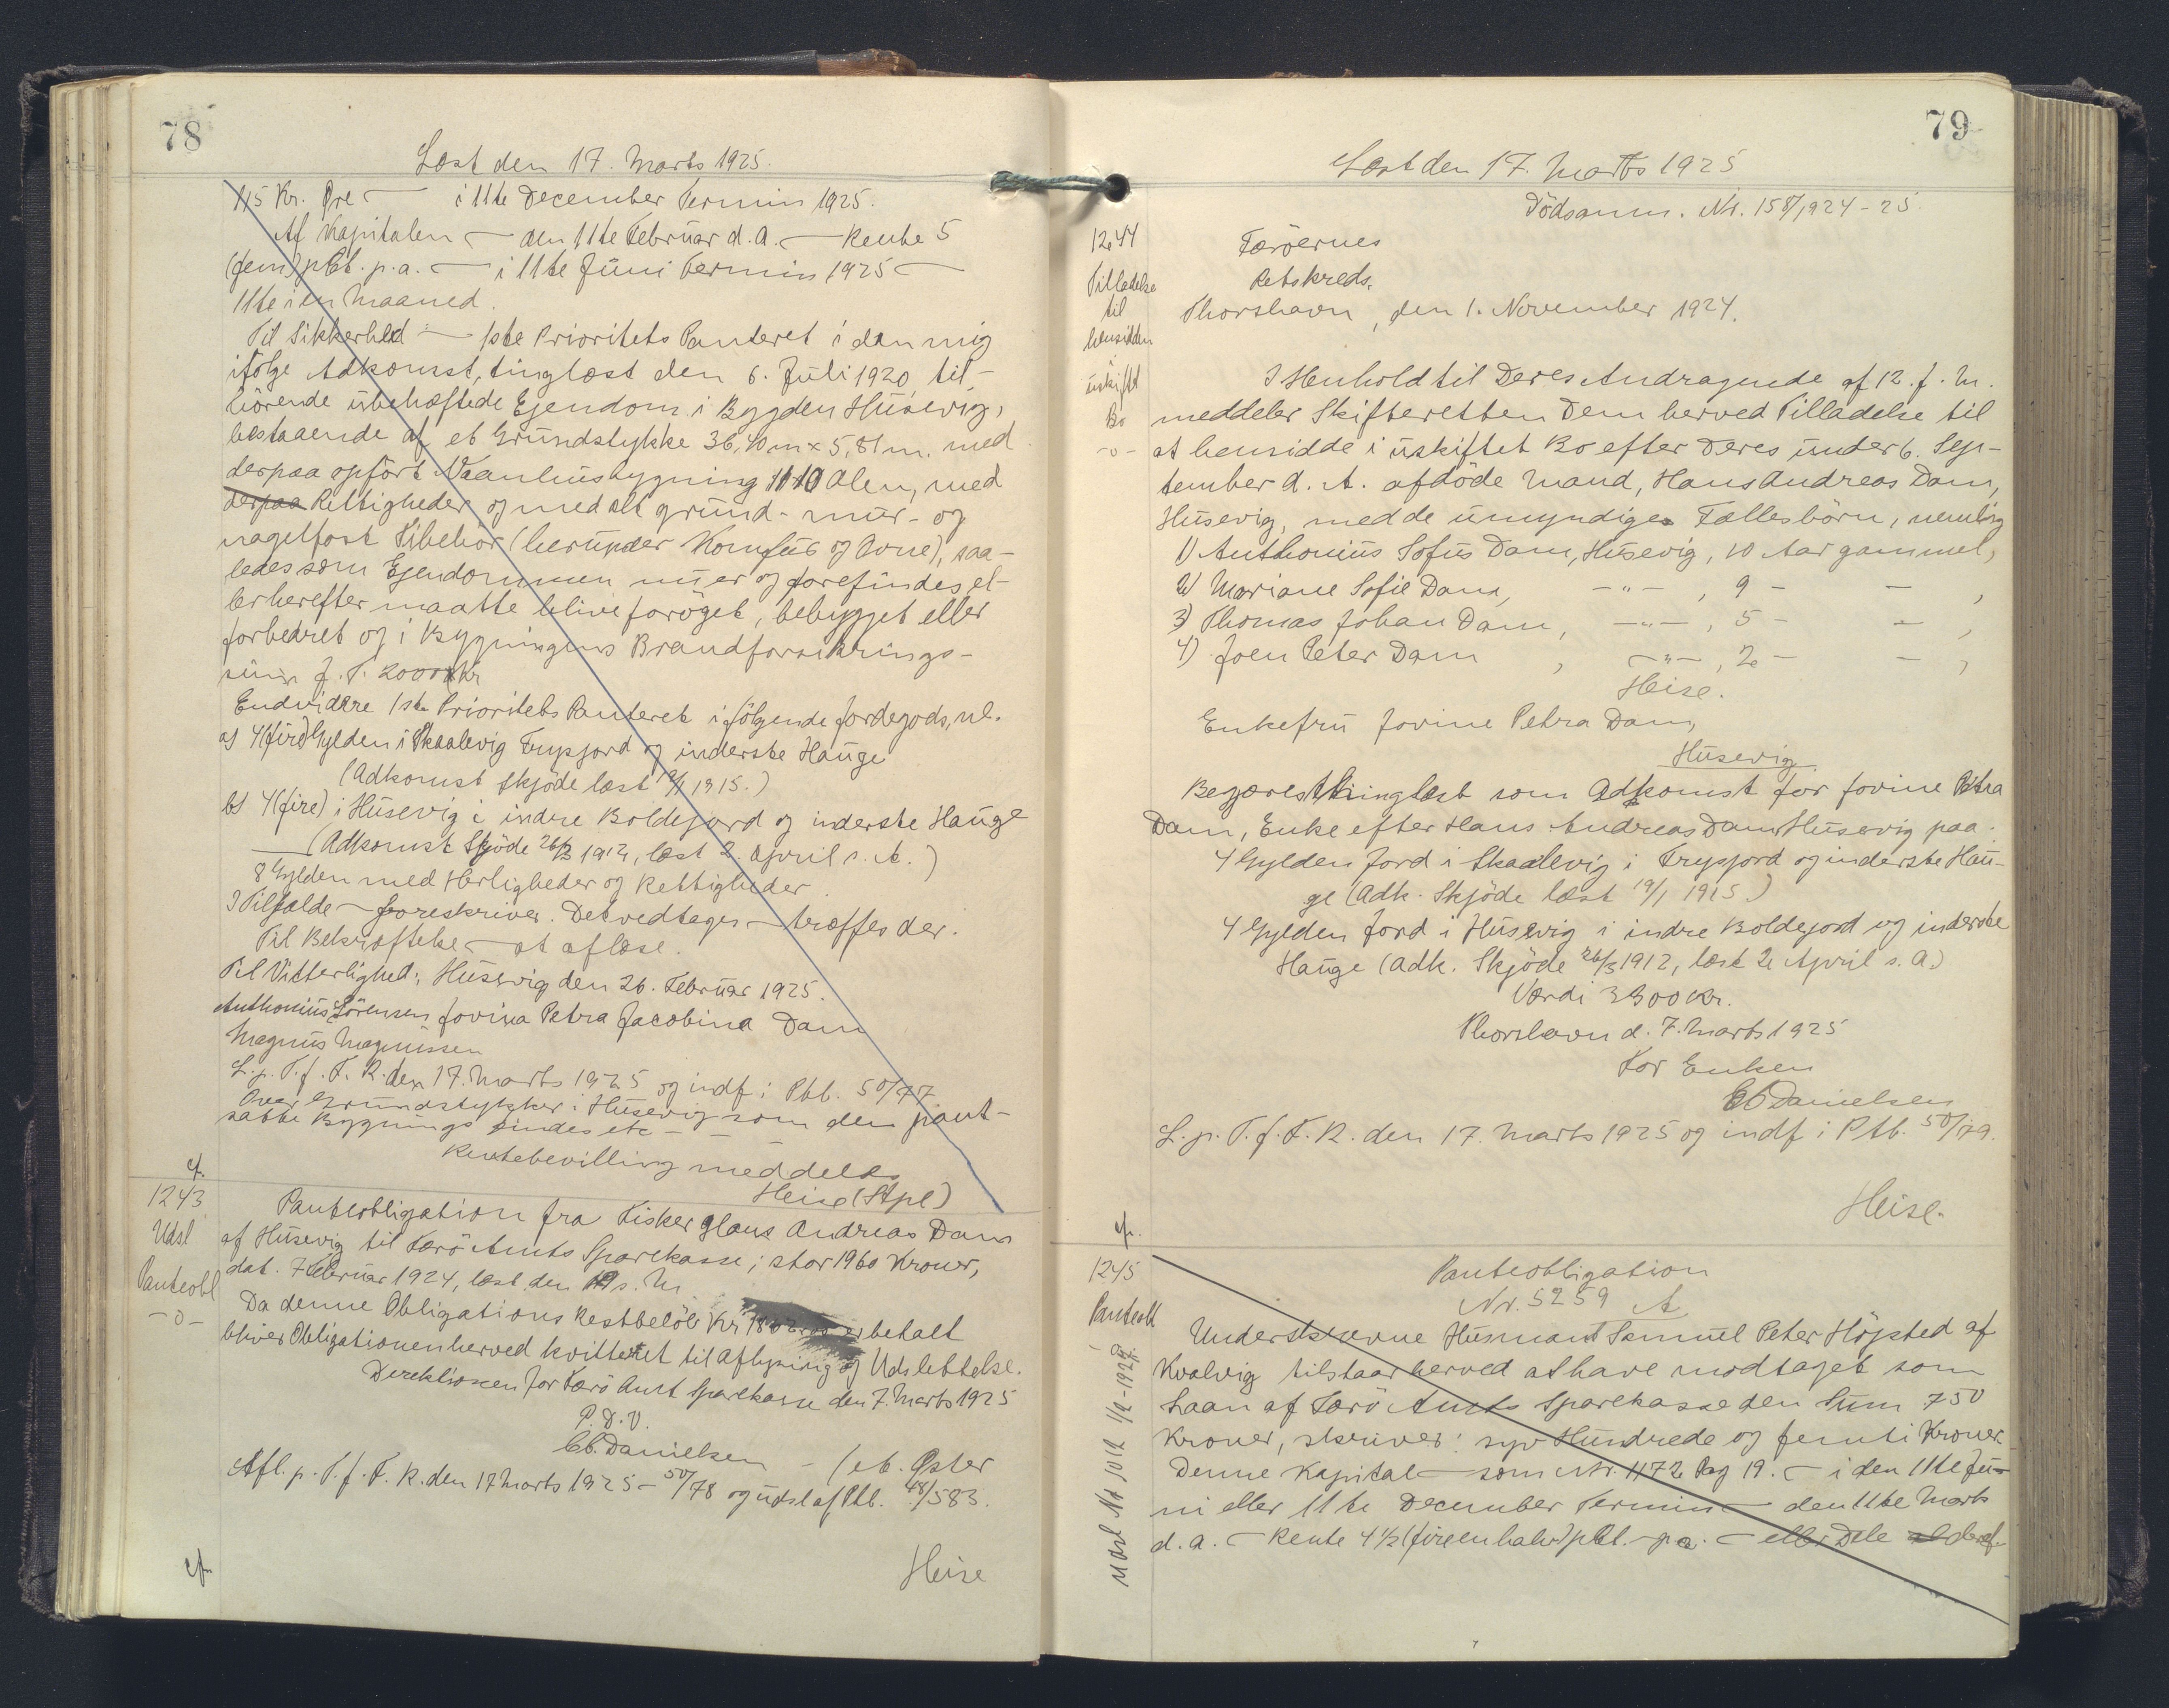 78
Læst den 17. Marts 1925.
115 Kr. Øre — i 11te December Termin 1925.
Af Kapitalen — den 11te Februar d. A. — Rente 5
(fem) pCt. p. a. — i 11te Juni Termin 1925 —
11te i en Maaned.
Til Sikkerhed — 1ste Prioritets Panteret i den mig
ifølge Adkomst, tinglæst den 6. Juli 1920 til-
hörende übehæftede Ejendom i Bygden Húsevig,
bestaaende af et Grundstykke 36,40 m x 5,81 m. med
derpaa opført Vaanhusbygning 11 10 Alen, med
derpaa Rettigheder og med alt grund- mur- og
nagelfast Tilbehör (herunder Komfur og Ovne), saa-
ledes som Ejendommen nu er og forefindes el-
ler herefter maatte blive forøget, bebygget eller
forbedret og i Bygningens Brandforsikrings-
sum f. T. 2000 Kr
Endvidere 1ste Prioritets Panteret i følgende Jordegods, nl.
a) 4 (fire) Gylden i Skaalevig Trysjord og inderste Hauge
(Adkomst Skjöde læst 19/1 1915.)
b) 4 (fire) i Húsevig i indre Boldejord og inderste Hauge
(Adkomst Skjöde 26/3 1912, læst 2. April s. A.)
8 Gylden med Herligheder og Rettigheder.
I Tilfælde — foreskriver. Det vedtages — træffes der.
Til Bekræftelse — at aflæse.
Til Vitterlighed: Húsevig den 26. Februar 1925.
Anthonius Sörensen Jovina Petra Jacobina Dam
Magnus Magnussen
L. p. T. f. F. R. den 17. Marts 1925 og indf i Ptb. 50/77
Over Grundstykker i Húsevig som den pant-
satte Bygnings findes etc — — —
Rentebevilling meddeles
Heise (Stpl)
cf.
1243
Udsl
Panteobl
-o-
Panteobligation fra Fisker Hans Andreas Dam
af Húsevig til Færö Amts Sparekasse; stor 1960 Kroner,
dat. 7 Februar 1924, læst den 19 s. M.
Da denne Obligations Restbelöb Kr er betalt
bliver Obligationen herved kvitteret til Aflysning og Udslettelse.
Direktionen for Færö Amt Sparekasse den 7. Marts 1925
P. D. V.
Cb. Danielsen — (eb. Øster
Afl. p. T. f. F. R. den 17 Marts 1925 — 50/78 og udsl af Ptb. 48/583.
cf.
Heise
79
Læst den 17. Marts 1925
Dödsanm. Nr. 158/1924-25.
1244
Tilladelse
til
hensidden
uskiftet
Bo
-o-
Færöernes
Retskreds.
Thorshavn, den 1. November 1924.
I Henhold til Deres Andragende af 12. f. M.
meddeler Skifteretten Dem herved Tilladelse til
at hensidde i uskiftet Bo efter Deres under 6. Sep-
tember d. A. afdöde Mand, Hans Andreas Dam,
Húsevig, med de umyndige Fællesbörn, nemlig
1) Anthonius Sofus Dam, Húsevig, 10 Aar gammel,
2) Mariane Sofie Dam, -"-, 9 - - ,
3) Thomas Johan Dam, -"-, 5 - - ,
4) Joen Peter Dam , -"-, 2 - - ,
Heise.
Enkefru Jovine Petra Dam,
Húsevig
Begæres thinglæst som Adkomst for Jovine Petra
Dam, Enke efter Hans Andreas Dam Húsevig paa.
4 Gylden Jord i Skaalevig i Trysjord og inderste Hau-
ge (Adk. Skjöde læst 19/1 1915)
4 Gylden Jord i Húsevig i indre Boldejord og inderste
Hauge (Adk. Skjöde 26/3 1912, læst 2 April s. A.)
Værdi 3300 Kr.
Thorshavn d. 7. Marts 1925
For Enken
Cb Danielsen
L. p. T. f. F. R. den 17. Marts 1925 og indf i Ptb. 50/79.
Heise.
cf.
1245
Panteobl
Udsl 1/2-1927.
Panteobligation
Nr. 5259 A
Underskrevne Husmand Samuel Peter Höjsted af
Kvalvig tilstaar herved at have modtaget som
Laan af Færö Amts Sparekasse den Sum 750
Kroner, skriver: syv Hundrede og femti Kroner.
Denne Kapital — som Nr. 1172 Pag 19. — i den 11te Ju-
ni eller 11te December Termin — den 11te Marts
d. a. — Rente 4 1/2 (fire en halv) pCt. p. a. — eller Dele deraf.